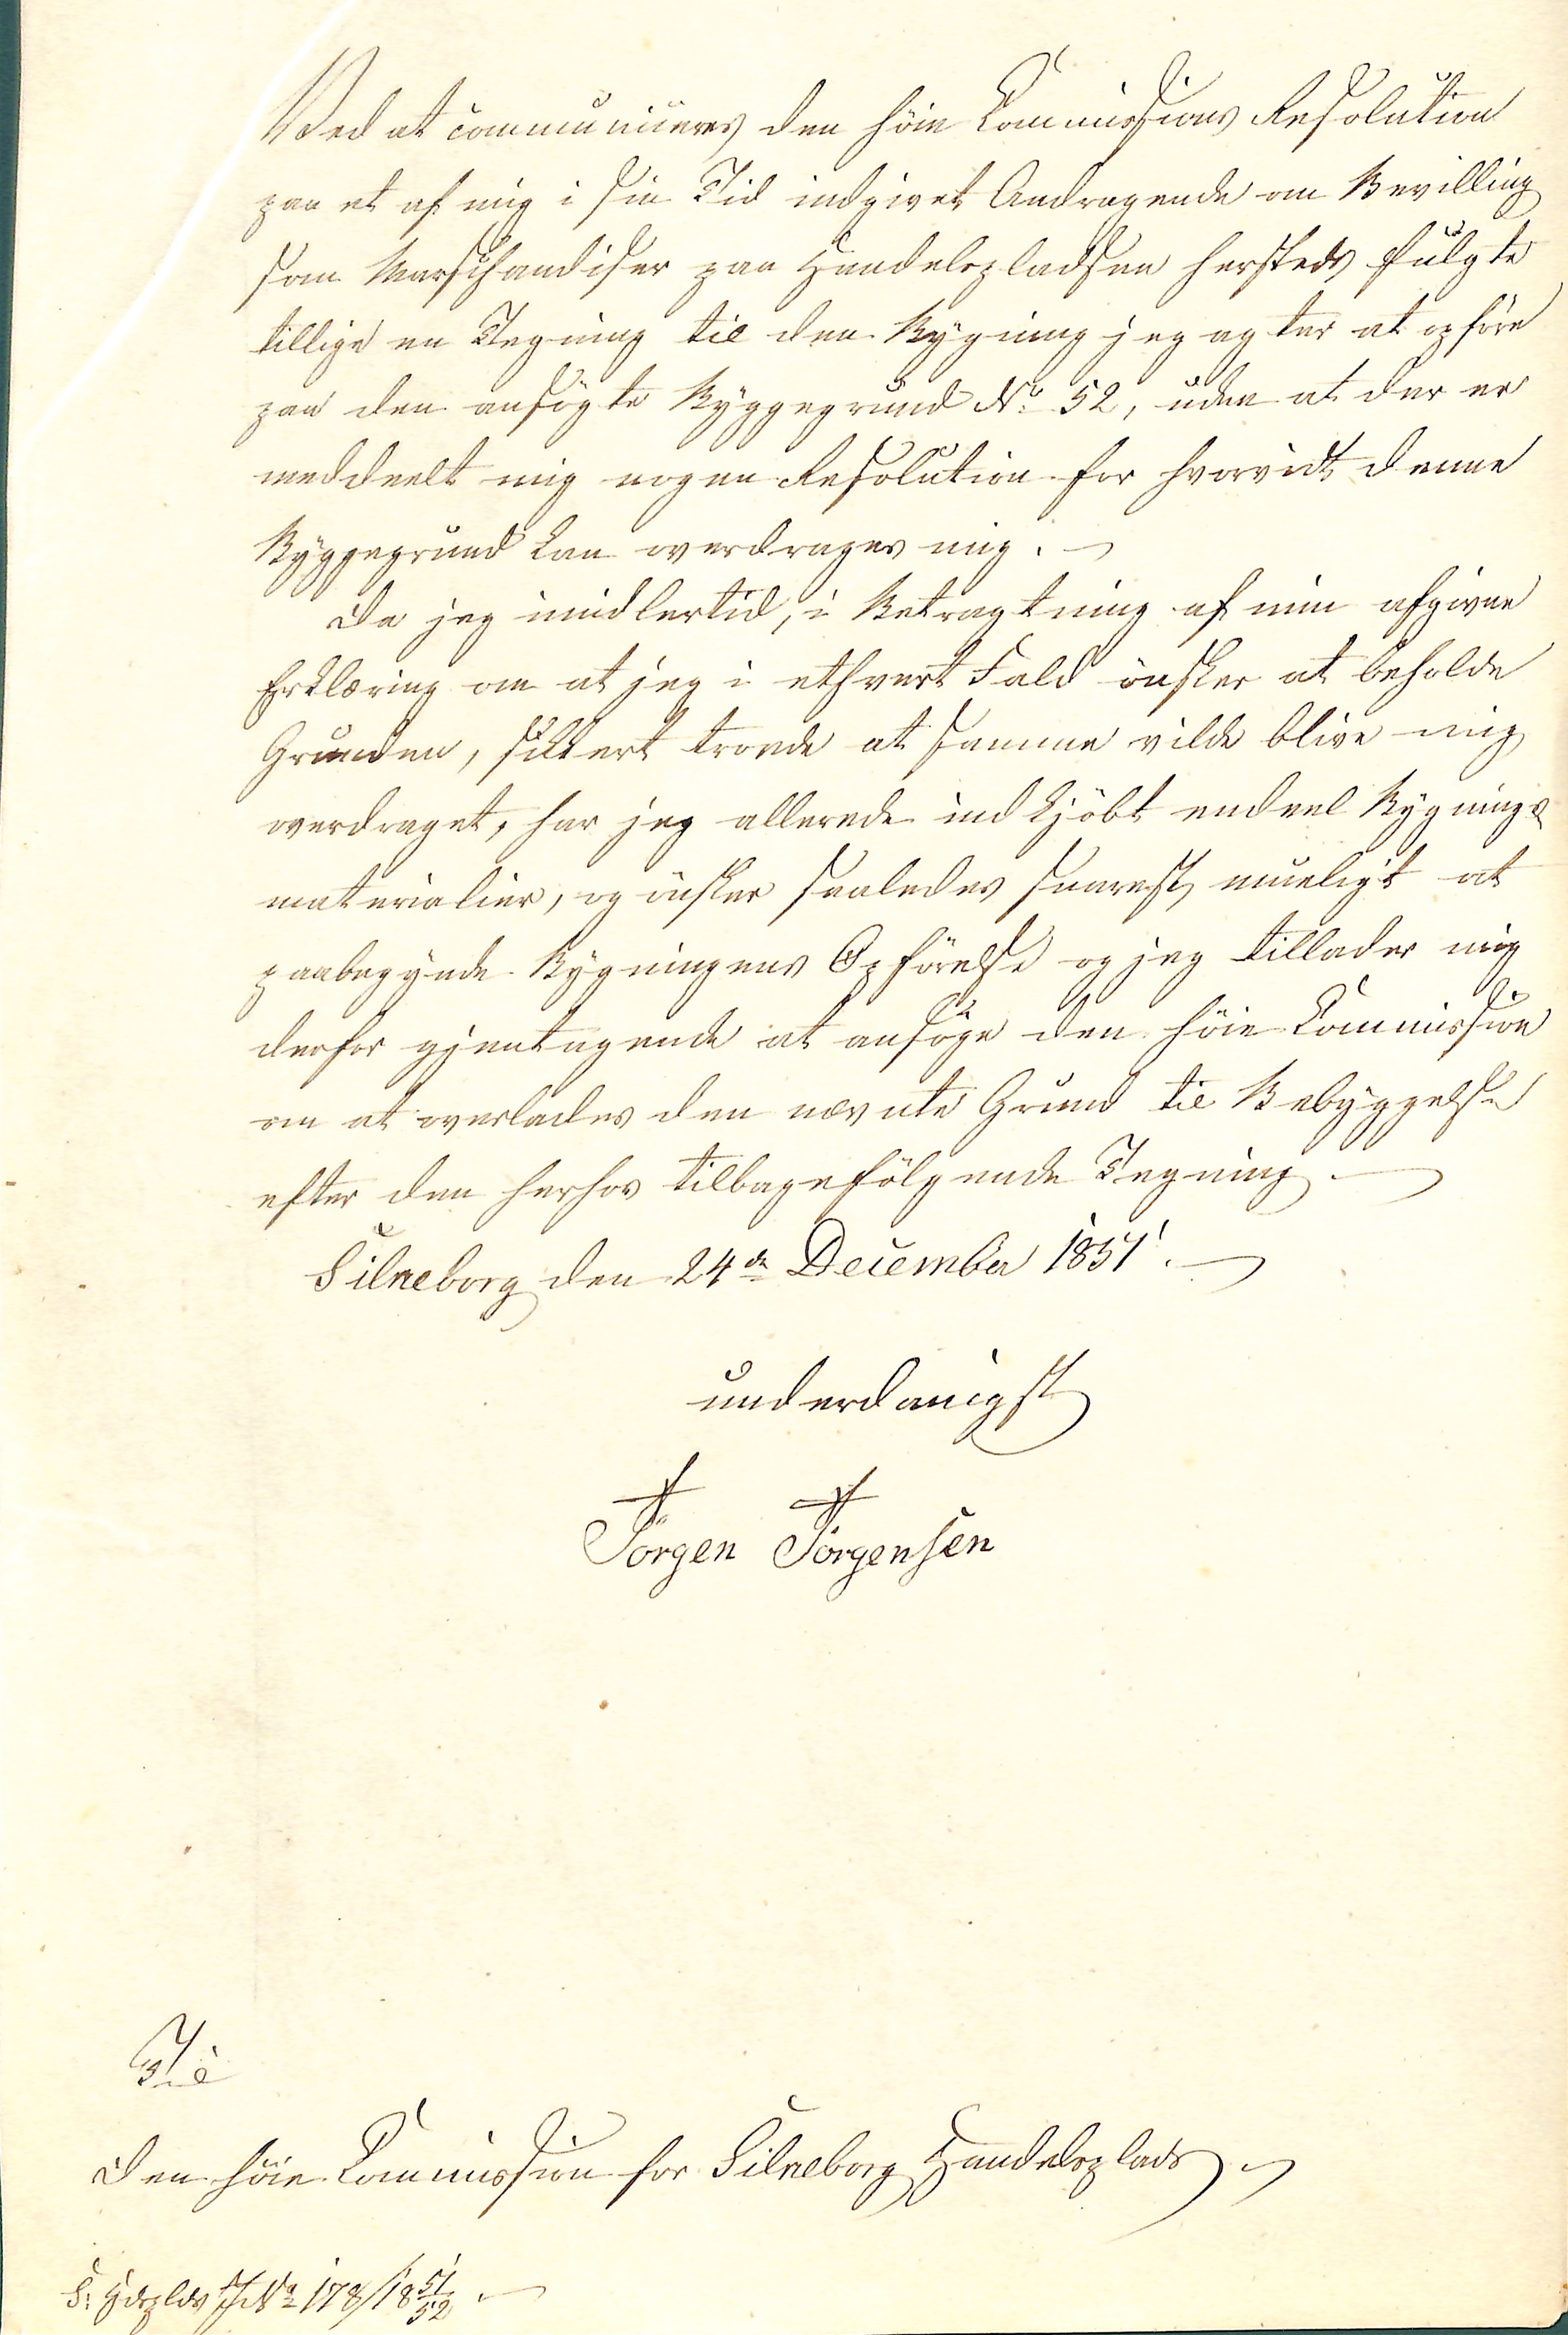 Ved at communiceres den høie Commissions Resolution
paa et af mig i sin Tid indgivet Andragende om Bevilling
som Marschandiser paa Handelspladsen hersteds fulgte
tillige en Tegning til den Bygning jeg agter at opføre
paa den ansøgte Byggegrund No 52, uden at der er
meddeelt mig nogen Resolution for hvorvidt denne
Byggegrund kan overdrages mig. -
Da jeg imidlertid, i Betragtning af min afgivne
Erklæring om at jeg i ethvert Fald ønsker at beholde
Grunden, sikkert troede at samme vilde blive mig
overdraget, har jeg allerede indkjøbt endeel Bygnings
materialier, og ønsker saaledes snarest mueligt at
paabegynde Bygningens Opførelse og jeg tillader mig
derfor gjentagende at ansøge den høie Commission
om at overlades den nævnte Grund til Bebyggelse
efter den herhos tilbagefølgende Tegning. -
Silkeborg den 24de December 1851. -
underdanigst
Jörgen Jörgensen
Til
den høie Commission for Silkeborg Handelsplads. -
S: Hdsplds J No 178/18 51/52. -